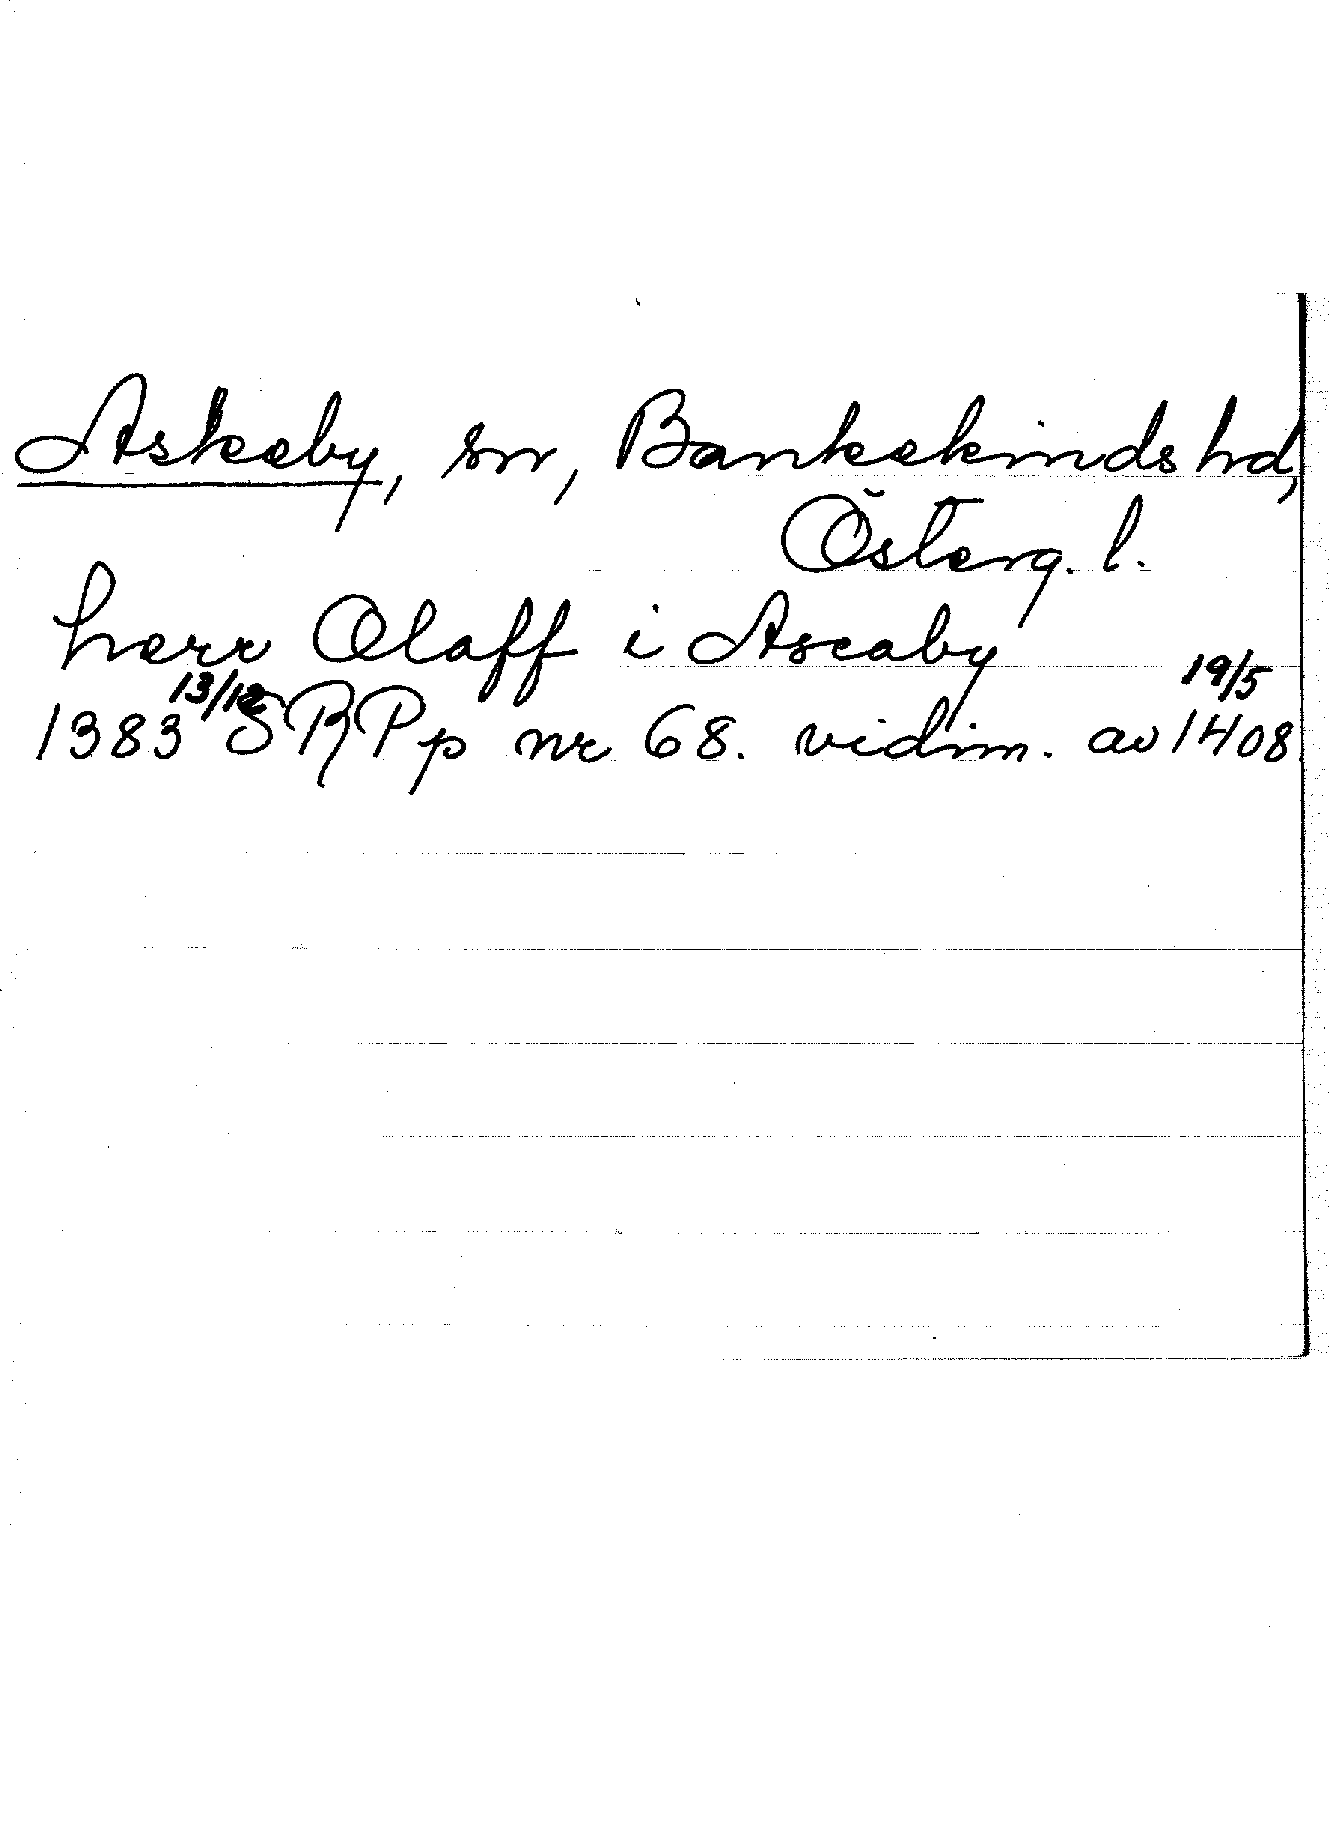 Askeby, sn, Bankekinds hd,
Österg. l.
herr Olaff i Ascaby
1383 13/12 SRPp nr 68. vidim. av 19/5 1408